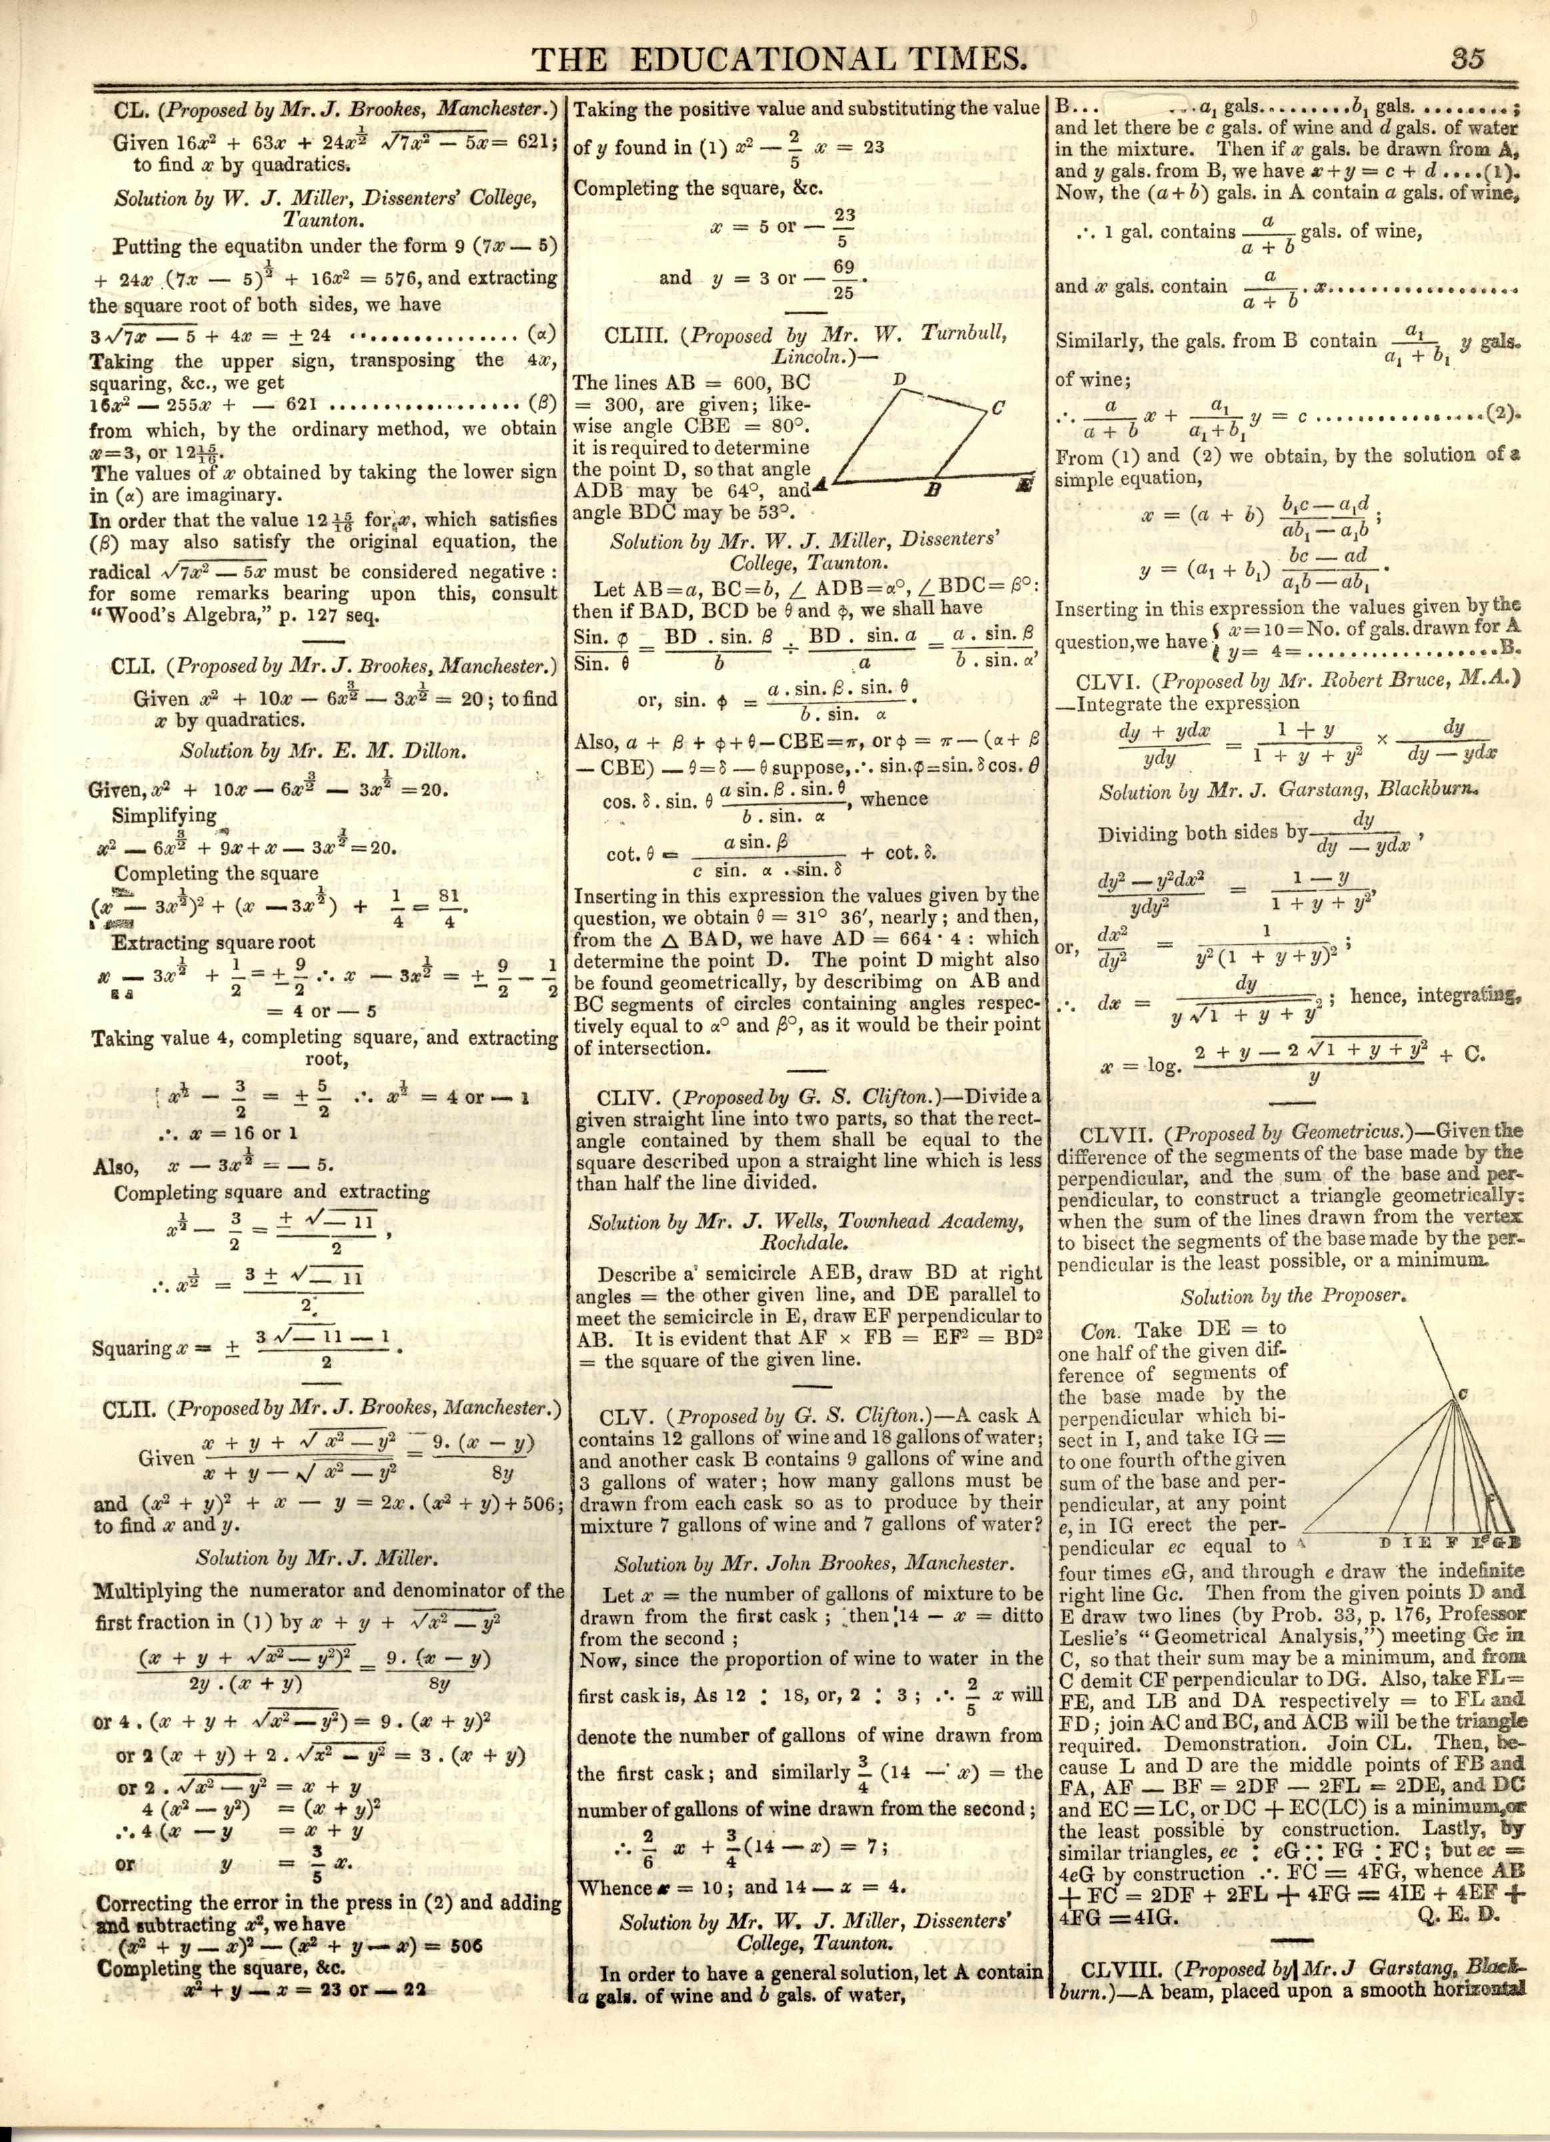 THE EDUCATIONAL TIMES.
35
CL. (Proposed by Mr. J. Brookes, Manchester.)
Given 16x² + 63x + 24x^½ √7x² — 5x = 621;
to find x by quadratics.
Solution by W. J. Miller, Dissenters' College,
Taunton.
Putting the equation under the form 9 (7x — 5)
+ 24x (7x — 5)^½ + 16x² = 576, and extracting
the square root of both sides, we have
3√7x — 5 + 4x = ± 24 .................. (α)
Taking the upper sign, transposing the 4x,
squaring, &c., we get
16x² — 255x + — 621 .................. (β)
from which, by the ordinary method, we obtain
x=3, or 12 15/16.
The values of x obtained by taking the lower sign
in (α) are imaginary.
In order that the value 12 15/16 for x, which satisfies
(β) may also satisfy the original equation, the
radical √7x² — 5x must be considered negative :
for some remarks bearing upon this, consult
"Wood's Algebra," p. 127 seq.
CLI. (Proposed by Mr. J. Brookes, Manchester.)
Given x² + 10x — 6x^3/2 — 3x^½ = 20; to find
x by quadratics.
Solution by Mr. E. M. Dillon.
Given, x² + 10x — 6x^3/2 — 3x^½ = 20.
Simplifying
x² — 6x^3/2 + 9x + x — 3x^½ = 20.
Completing the square
(x — 3x^½)² + (x — 3x^½) + 1/4 = 81/4.
Extracting square root
x — 3x^½ + 1/2 = ± 9/2 ∴ x — 3x^½ = ± 9/2 — 1/2
= 4 or — 5
Taking value 4, completing square, and extracting
root,
x^½ — 3/2 = ± 5/2 ∴ x^½ = 4 or — 1
∴ x = 16 or 1
Also, x — 3x^½ = — 5.
Completing square and extracting
x^½ — 3/2 = ± √— 11 / 2,
∴ x^½ = 3 ± √— 11 / 2;
Squaring x = ± 3 √— 11 — 1 / 2.
CLII. (Proposed by Mr. J. Brookes, Manchester.)
Given x + y + √x² — y² / x + y — √x² — y² = 9. (x — y) / 8y
and (x² + y)² + x — y = 2x. (x² + y) + 506;
to find x and y.
Solution by Mr. J. Miller.
Multiplying the numerator and denominator of the
first fraction in (1) by x + y + √x² — y²
(x + y + √x² — y²)² / 2y . (x + y) = 9. (x — y) / 8y
or 4 . (x + y + √x² — y²) = 9 . (x + y)²
or 2 (x + y) + 2 . √x² — y² = 3 . (x + y)
or 2 . √x² — y² = x + y
4 (x² — y²) = (x + y)²
∴ 4 (x — y = x + y
or y = 3/5 x.
Correcting the error in the press in (2) and adding
and subtracting x², we have
(x² + y — x)² — (x² + y — x) = 506
Completing the square, &c.
x² + y — x = 23 or — 22
Taking the positive value and substituting the value
of y found in (1) x² — 2/5 x = 23
Completing the square, &c.
x = 5 or — 23/5
and y = 3 or — 69/25.
CLIII. (Proposed by Mr. W. Turnbull,
Lincoln.)—
The lines AB = 600, BC
= 300, are given; like-
wise angle CBE = 80°.
it is required to determine
the point D, so that angle
ADB may be 64°, and
angle BDC may be 53°.
D
C
A
B
E
Solution by Mr. W. J. Miller, Dissenters'
College, Taunton.
Let AB=a, BC=b, ∠ ADB=α°, ∠BDC=β°:
then if BAD, BCD be θ and φ, we shall have
Sin. φ / Sin. θ = BD . sin. β / b ÷ BD . sin. a / a = a . sin. β / b . sin. α,
or, sin. φ = a . sin. β. sin. θ / b. sin. α.
Also, a + β + φ + θ — CBE = π, or φ = π — (α + β
— CBE) — θ = δ — θ suppose, ∴ sin. φ = sin. δ cos. θ
cos. δ . sin. θ a sin. β . sin. θ / b . sin. α, whence
cot. θ = a sin. β / c sin. α . sin. δ + cot. δ.
Inserting in this expression the values given by the
question, we obtain θ = 31° 36′, nearly; and then,
from the △ BAD, we have AD = 664·4 : which
determine the point D. The point D might also
be found geometrically, by describimg on AB and
BC segments of circles containing angles respec-
tively equal to α° and β°, as it would be their point
of intersection.
CLIV. (Proposed by G. S. Clifton.)—Divide a
given straight line into two parts, so that the rect-
angle contained by them shall be equal to the
square described upon a straight line which is less
than half the line divided.
Solution by Mr. J. Wells, Townhead Academy,
Rochdale.
Describe a semicircle AEB, draw BD at right
angles = the other given line, and DE parallel to
meet the semicircle in E, draw EF perpendicular to
AB. It is evident that AF × FB = EF² = BD²
= the square of the given line.
CLV. (Proposed by G. S. Clifton.)—A cask A
contains 12 gallons of wine and 18 gallons of water;
and another cask B contains 9 gallons of wine and
3 gallons of water; how many gallons must be
drawn from each cask so as to produce by their
mixture 7 gallons of wine and 7 gallons of water?
Solution by Mr. John Brookes, Manchester.
Let x = the number of gallons of mixture to be
drawn from the first cask ; then 14 — x = ditto
from the second ;
Now, since the proportion of wine to water in the
first cask is, As 12 : 18, or, 2 : 3 ; ∴ 2/5 x will
denote the number of gallons of wine drawn from
the first cask; and similarly 3/4 (14 — x) = the
number of gallons of wine drawn from the second ;
∴ 2/6 x + 3/4 (14 — x) = 7;
Whence x = 10; and 14 — x = 4.
Solution by Mr. W. J. Miller, Dissenters'
College, Taunton.
In order to have a general solution, let A contain
a gals. of wine and b gals. of water,
B... ...a₁ gals.........b₁ gals. .........;
and let there be c gals. of wine and d gals. of water
in the mixture. Then if x gals. be drawn from A,
and y gals. from B, we have x+y = c + d ....(1).
Now, the (a+b) gals. in A contain a gals. of wine,
∴ 1 gal. contains a / a + b gals. of wine,
and x gals. contain a / a + b . x..................
Similarly, the gals. from B contain a₁ / a₁ + b₁ y gals.
of wine;
∴ a / a + b x + a₁ / a₁+b₁ y = c ..................(2).
From (1) and (2) we obtain, by the solution of a
simple equation,
x = (a + b) b₁c — a₁d / ab₁ — a₁b ;
y = (a₁ + b₁) bc — ad / a₁b — ab₁.
Inserting in this expression the values given by the
question, we have { x=10=No. of gals. drawn for A
{ y= 4= ..................B.
CLVI. (Proposed by Mr. Robert Bruce, M.A.)
—Integrate the expression
dy + ydx / ydy = 1 + y / 1 + y + y² × dy / dy — ydx
Solution by Mr. J. Garstang, Blackburn.
Dividing both sides by dy / dy — ydx,
dy² — y²dx² / ydy² = 1 — y / 1 + y + y²,
or, dx² / dy² = 1 / y² (1 + y + y)² ;
∴ dx = dy / y √1 + y + y² ; hence, integrating,
x = log. 2 + y — 2 √1 + y + y² / y + C.
CLVII. (Proposed by Geometricus.)—Given the
difference of the segments of the base made by the
perpendicular, and the sum of the base and per-
pendicular, to construct a triangle geometrically:
when the sum of the lines drawn from the vertex
to bisect the segments of the base made by the per-
pendicular is the least possible, or a minimum.
Solution by the Proposer.
Con. Take DE = to
one half of the given dif-
ference of segments of
the base made by the
perpendicular which bi-
sect in I, and take IG =
to one fourth of the given
sum of the base and per-
pendicular, at any point
e, in IG erect the per-
pendicular ec equal to
C
A D I E F L e G B
four times eG, and through e draw the indefinite
right line Gc. Then from the given points D and
E draw two lines (by Prob. 33, p. 176, Professor
Leslie's "Geometrical Analysis,") meeting Gc in
C, so that their sum may be a minimum, and from
C demit CF perpendicular to DG. Also, take FL =
FE, and LB and DA respectively = to FL and
FD; join AC and BC, and ACB will be the triangle
required. Demonstration. Join CL. Then, be-
cause L and D are the middle points of FB and
FA, AF — BF = 2DF — 2FL = 2DE, and DC
and EC = LC, or DC + EC(LC) is a minimum, or
the least possible by construction. Lastly, by
similar triangles, ec : eG :: FG : FC ; but ec =
4eG by construction ∴ FC = 4FG, whence AB
+ FC = 2DF + 2FL + 4FG = 4IE + 4EF +
4FG = 4IG. Q. E. D.
CLVIII. (Proposed by Mr. J Garstang, Black-
burn.)—A beam, placed upon a smooth horizontal